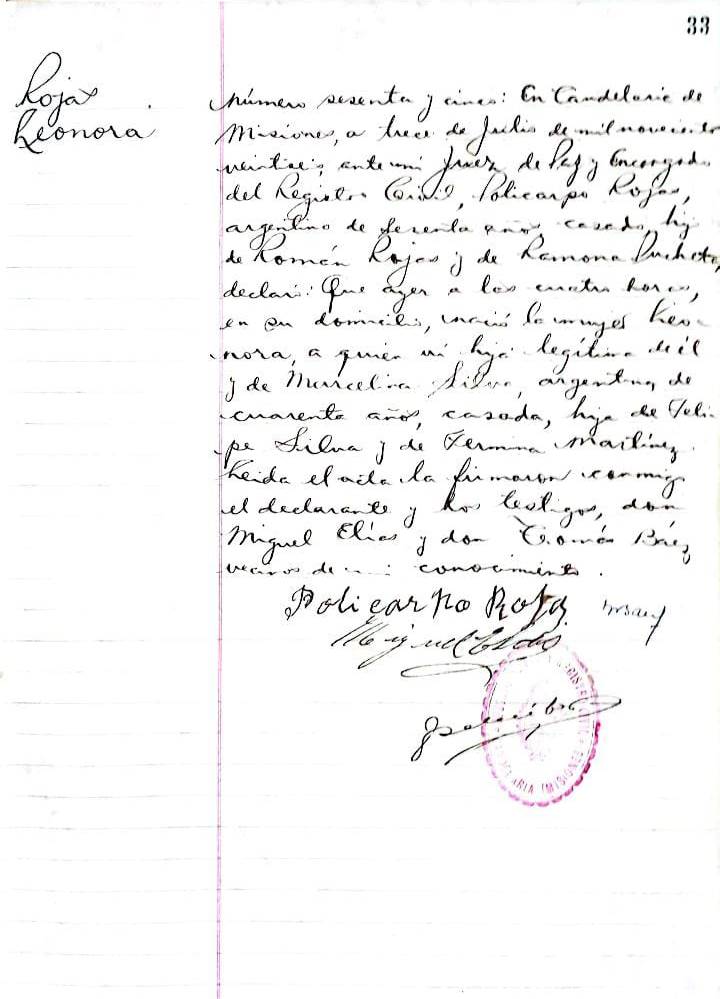 33
Rojas
Leonora
Número sesenta y cinco: En Candelaria de
Misiones, a trece de Julio de mil novecientos
veintiseis, ante mi Juez de Paz y Encargado
del Registro Civil, Policarpo Rojas,
argentino de años, casado, hijo
de Román Rojas y de Ramona Pucheta,
declaró: Que ayer a las cuatro horas,
en su domicilio, nació la mujer Leo-
nora, a quien vi hija legítima de él
y de Marcelina Silva, argentina, de
cuarenta años, casada, hija de Feli-
pe Silva y de Fermina Martínez.
Leida el acta la firmaron conmigo
el declarante y los testigos, don
Miguel Elías y don Tomás Báez
vecinos de mi conocimiento.
Policarpo Rojas
Miguel Elias